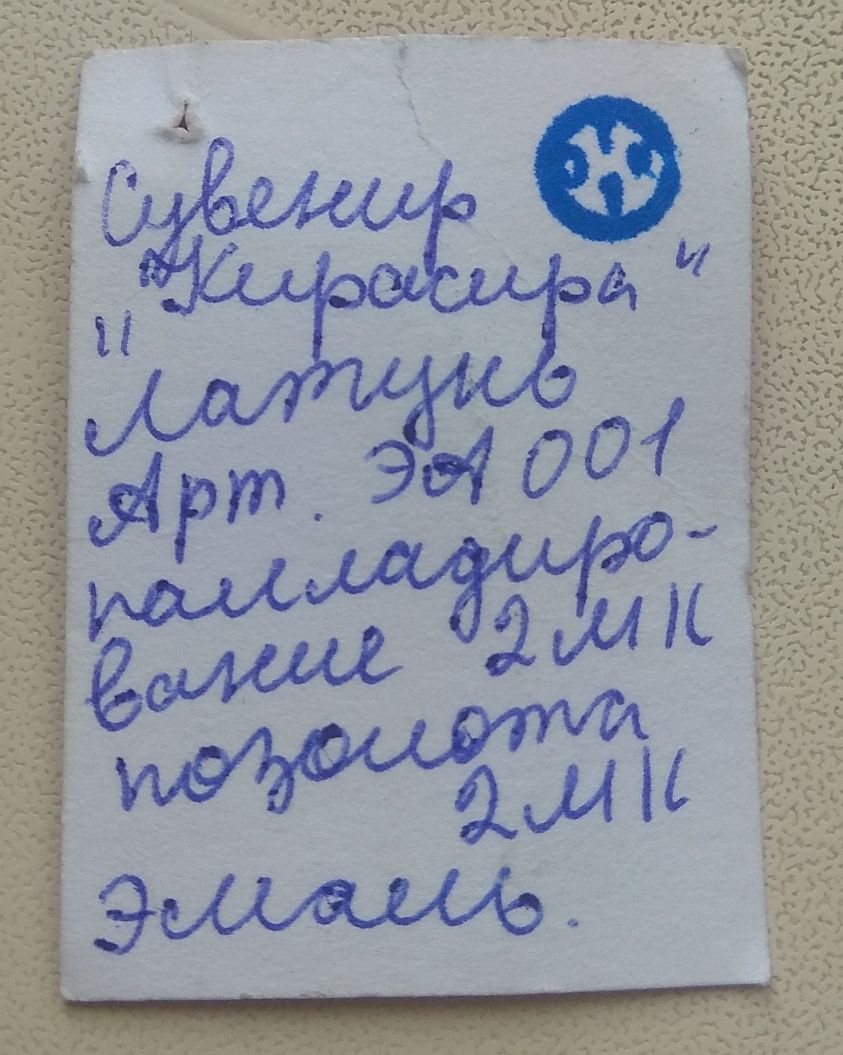 Сувенир
"Кирасира"
"Латунь
Арт. ЭА 001
палладиро-
вание 2МК
позолота
2МК
Эмаль.